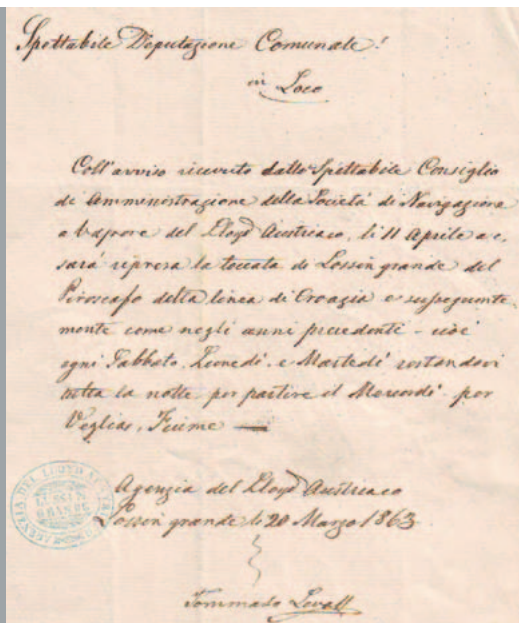 Spettabile Deputazione Comunale!
in Loco
Coll'avviso ricevuto dallo Spettabile Consiglio
di Amministrazione della Società di Navigazione
a Vapore del Lloyd Austriaco, li 11 Aprile a.c.
sarà ripresa la toccata di Lossin grande del
Piroscafo della linea di Croazia e susseguente-
mente come negli anni precedenti - cioè
ogni Sabbato, Lunedì, e Martedì restandovi
tutta la notte per partire il Mercordì per
Veglia, Fiume
Agenzia del Lloyd Austriaco
Lossin grande li 20 Marzo 1863.
Tommaso
AGENZIA DEL LLOYD AUSTRIACO
LUSSIN
GRANDE